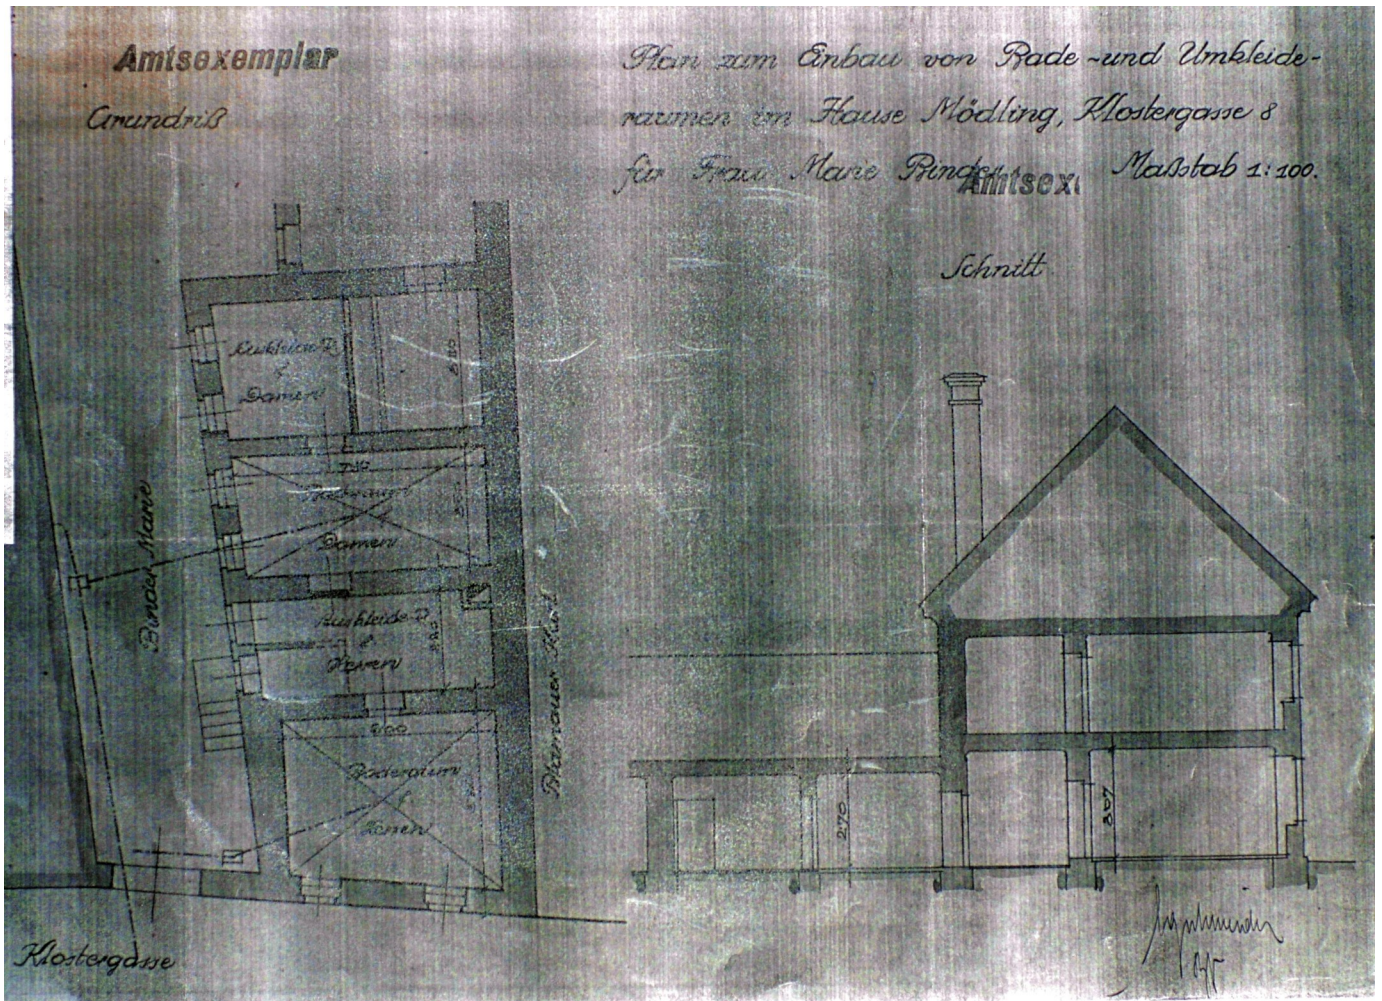 Amtsexemplar
Grundriß
Plan zum Einbau von Bade-und Umkleide-
räumen im Hause Mödling, Klostergasse 8
für Frau Marie Binder. Maßstab 1:100.
Amtsex
Schnitt
Auskleide-R
f
Damen
Baderaum
Damen
Auskleide-R
f
Herren
600
Baderaum
f
Herren
Binder Marie
Klostergasse
270
307